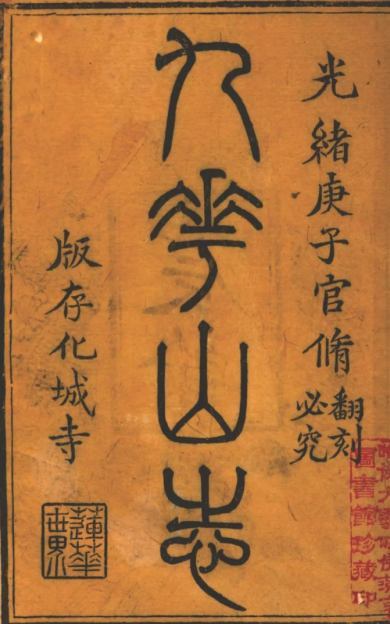 光緒庚子官脩
翻刻
必究
九華山志
版存化城寺
蓮華
世界
圖書館珍藏印